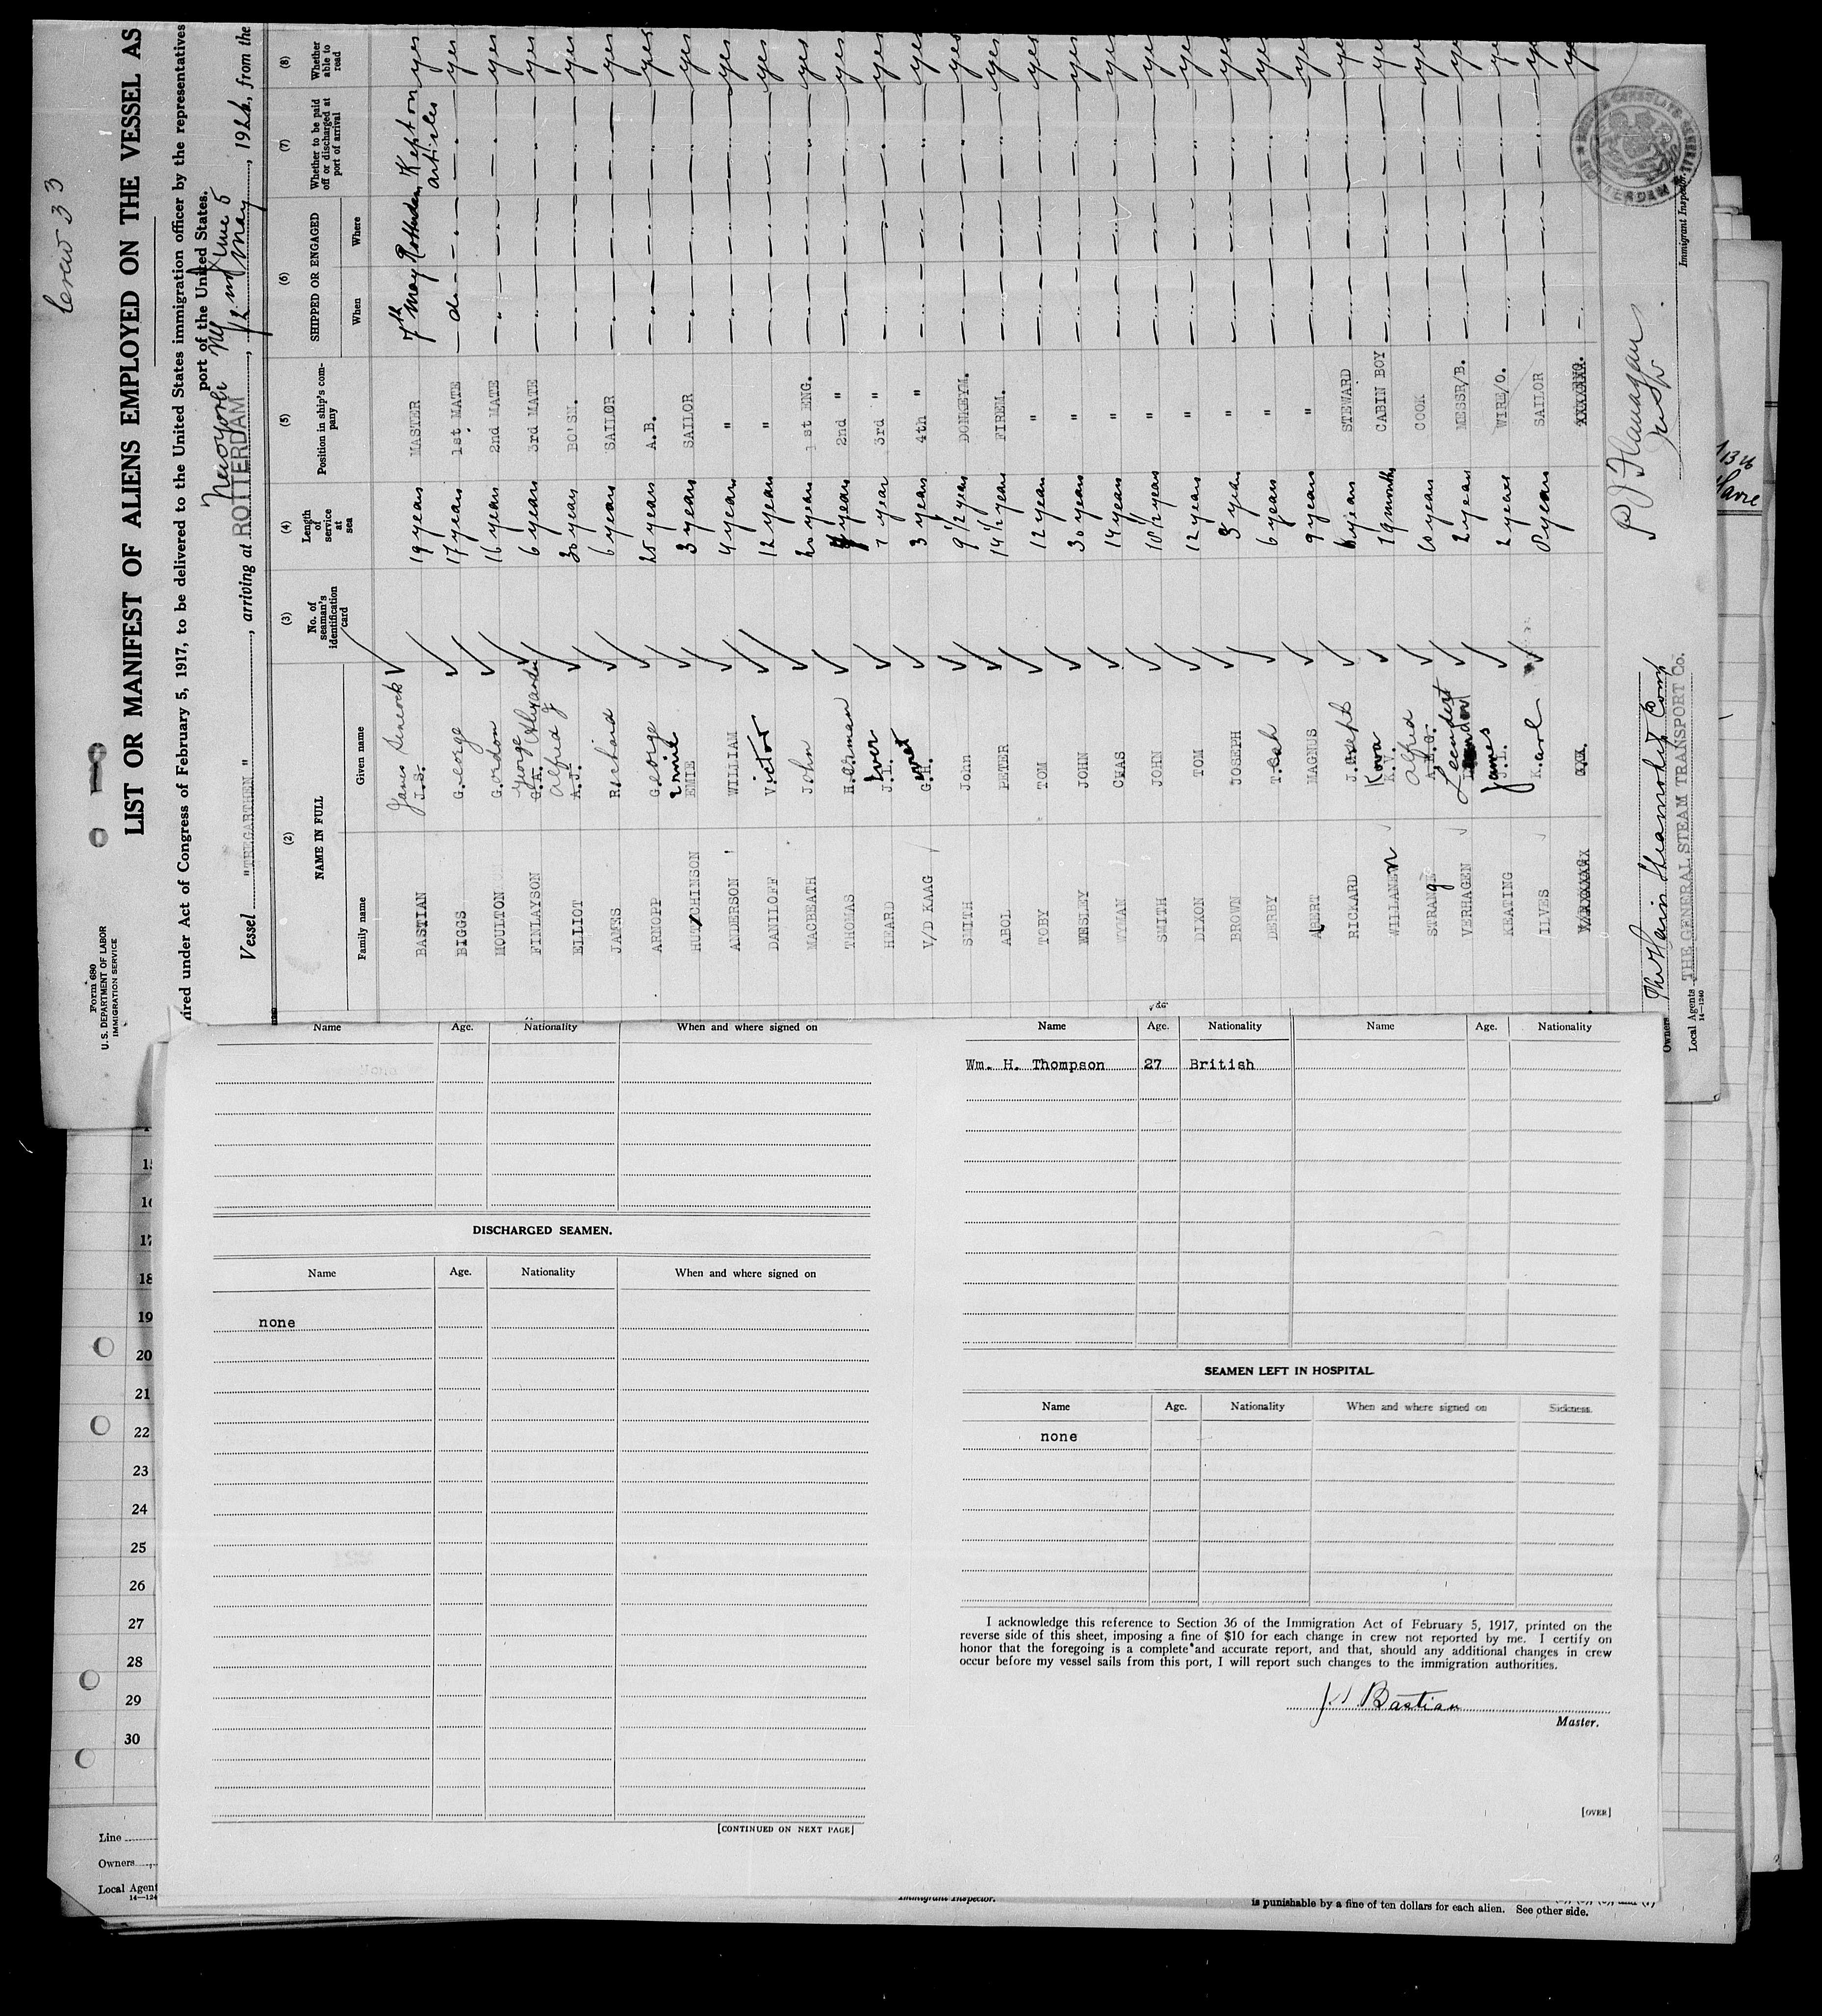 Crew 33
Form 680
U.S. DEPARTMENT OF LABOR
IMMIGRATION SERVICE
LIST OR MANIFEST OF ALIENS EMPLOYED ON THE VESSEL AS
ired under Act of Congress of February 5, 1917, to be delivered to the United States immigration officer by the representatives
port of the United States.
Vessel "TREGARTHEN", arriving at ROTTERDAM New York NY, 2 nd June 5 12 May, 192, from the
(2) (3) (4) (5) (6) (7) (8)
NAME IN FULL
No. of seaman's identification card
Length of service at sea
Position in ship's company
SHIPPED OR ENGAGED
Whether to be paid off or discharged at port of arrival
Whether able to read
Family name Given name When Where
BASTIAN J.S. James Sincock 19 years MASTER 7th May Rotterdam Kept on articles yes
BIGGS George 17 years 1st MATE do yes
MOULTON Gordon 16 years 2nd MATE " yes
FINLAYSON G.A. George Alexander 6 years 3rd MATE " yes
ELLIOT A.J. Alfred J 30 years BO'SN. " yes
JAMES Richard 6 years SAILOR " yes
ARNOPP George 25 years A.B. " yes
HUTCHINSON EMIE Ernie 3 years SAILOR " yes
ANDERSON WILLIAM 4 years " " yes
DANILOFF Victor 12 years " " yes
MACBEATH John 20 years 1st ENG. " yes
THOMAS Herman years 2nd " " yes
HEARD J.I. Iver 7 year 3rd " " yes
V/D KAAG G.H. 3 years 4th " " yes
SMITH John 9 1/2 years DONKEYM. " yes
ABOL PETER 14 1/2 years FIREM. " yes
TOBY TOM 12 years " " yes
WESLEY JOHN 30 years " " yes
WYMAN CHAS 14 years " " yes
SMITH JOHN 10 1/2 years " " yes
DIXON TOM 12 years " " yes
BROWN JOSEPH 3 years " " yes
DERBY 6 years " " yes
ABERT MAGNUS 9 years " " yes
RICKARD Joseph 6 years STEWARD " yes
WILLANEWN K.V. 19 months CABIN BOY " yes
STRANGE Alfred 10 years COOK " yes
VERHAGEN Leendert 2 years MESSR/B. " yes
KEATING J.I. James 2 years WIRE/O. " yes
ILVES Karl 8 years SAILOR " yes
P J Flanagan
Immigrant Inspector.
Owners The Hain Steamship Comp
Local Agents THE GENERAL STEAM TRANSPORT Co.
14—1240
Name Age. Nationality When and where signed on
DISCHARGED SEAMEN.
Name Age. Nationality When and where signed on
none
[CONTINUED ON NEXT PAGE]
Name Age. Nationality Name Age. Nationality
Wm. H. Thompson 27 British
SEAMEN LEFT IN HOSPITAL
Name Age. Nationality When and where signed on Sickness.
none
I acknowledge this reference to Section 36 of the Immigration Act of February 5, 1917, printed on the
reverse side of this sheet, imposing a fine of $10 for each change in crew not reported by me. I certify on
honor that the foregoing is a complete and accurate report, and that, should any additional changes in crew
occur before my vessel sails from this port, I will report such changes to the immigration authorities.
J.S. Bastian
Master.
[OVER]
15
16
17
18
19
20
21
22
23
24
25
26
27
28
29
30
Line
Owners
Local Agent
14—124
Immigrant Inspector.
is punishable by a fine of ten dollars for each alien. See other side.